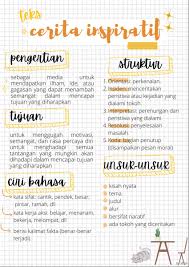 Teks
cerita inspiratif
pengertian
sebagai media untuk
mendapatkan ilham, ide, atau
gagasan yang dapat menambah
semangat dalam mencapai
tujuan yang diharapkan
tujuan
untuk menggugah motivasi,
semangat, dan rasa percaya diri
untuk menghadapi semua
tantangan yang mungkin akan
dihadapi dalam mencapai tujuan
yang diharapkan
ciri bahasa
kata sifat: cantik, pendek, besar,
dll
kata kerja aksi: belajar, menanam,
bekerja, melompat, dll
berisi kalimat fakta (benar-benar
terjadi)
struktur
1. Orientasi: perkenalan,
2. 
peristiwa atau kejadian yang
dialami tokoh
3. 
pendapat tentang peristiwa
yang dialami
4. Resolusi: penyelesaian
masalah
5. 
unsur-unsur
kisah nyata
tema
judul
alur
bersifat naratif
ada tokoh yang diceritakan